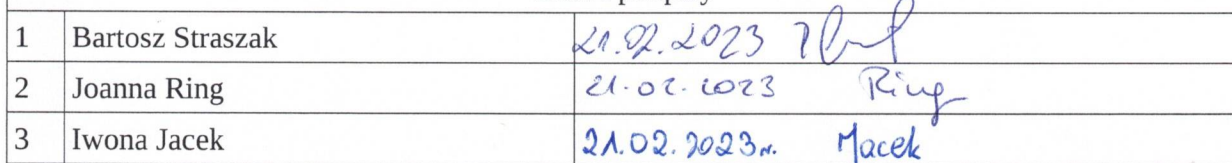 1 Bartosz Straszak 21.02.2023
2 Joanna Ring 21.02.2023 Ring
3 Iwona Jacek 21.02.2023r. Jacek